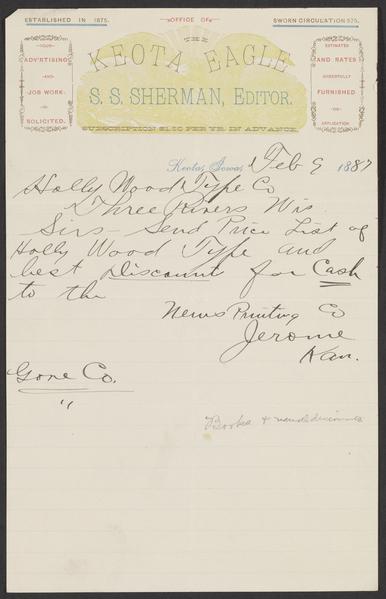 ESTABLISHED IN 1875.
OFFICE OF
SWORN CIRCULATION 525.
THE
KEOTA EAGLE
S. S. SHERMAN, EDITOR.
SUBSCRIPTION $1.50 PER YR. IN ADVANCE.
YOUR
ADVERTISING
AND
JOB WORK
IS
SOLICITED.
ESTIMATES
AND RATES
CHEERFULLY
FURNISHED
ON
APPLICATION
Keota, Iowa, Feb 9 1887
Holly Wood Type Co
Three Rivers Wis.
Sirs - Send Price List of
Holly Wood Type and
best Discount for Cash
to the
News Printing Co
Jerome
Kan.
Gove Co.
"
Books &